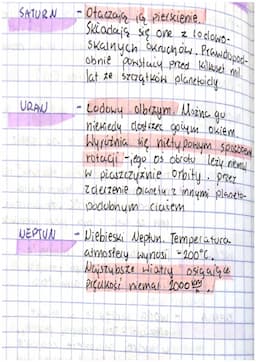 SATURN - Otaczają ją pierścienie.
Składają się one z lodowo-
skalnych okruchów. Prawdopod-
obnie powstały przed kilkuset mil
lat ze szczątków planetoidy
URAN - Lodowy olbrzym. Można go
niekiedy dostrzec gołym okiem
Wyróżnia się nietypowym sposobem
rotacji - jego oś obrotu leży niemal
w płaszczyźnie orbity. przez
zderzenie planetu z innymi planeto-
podobnym ciałem
NEPTUN - Niebieski Neptun. Temperatura
atmosfery wynosi -200°C.
Najszybsze wiatry osiągające
prędkości niemal 2000 km/h